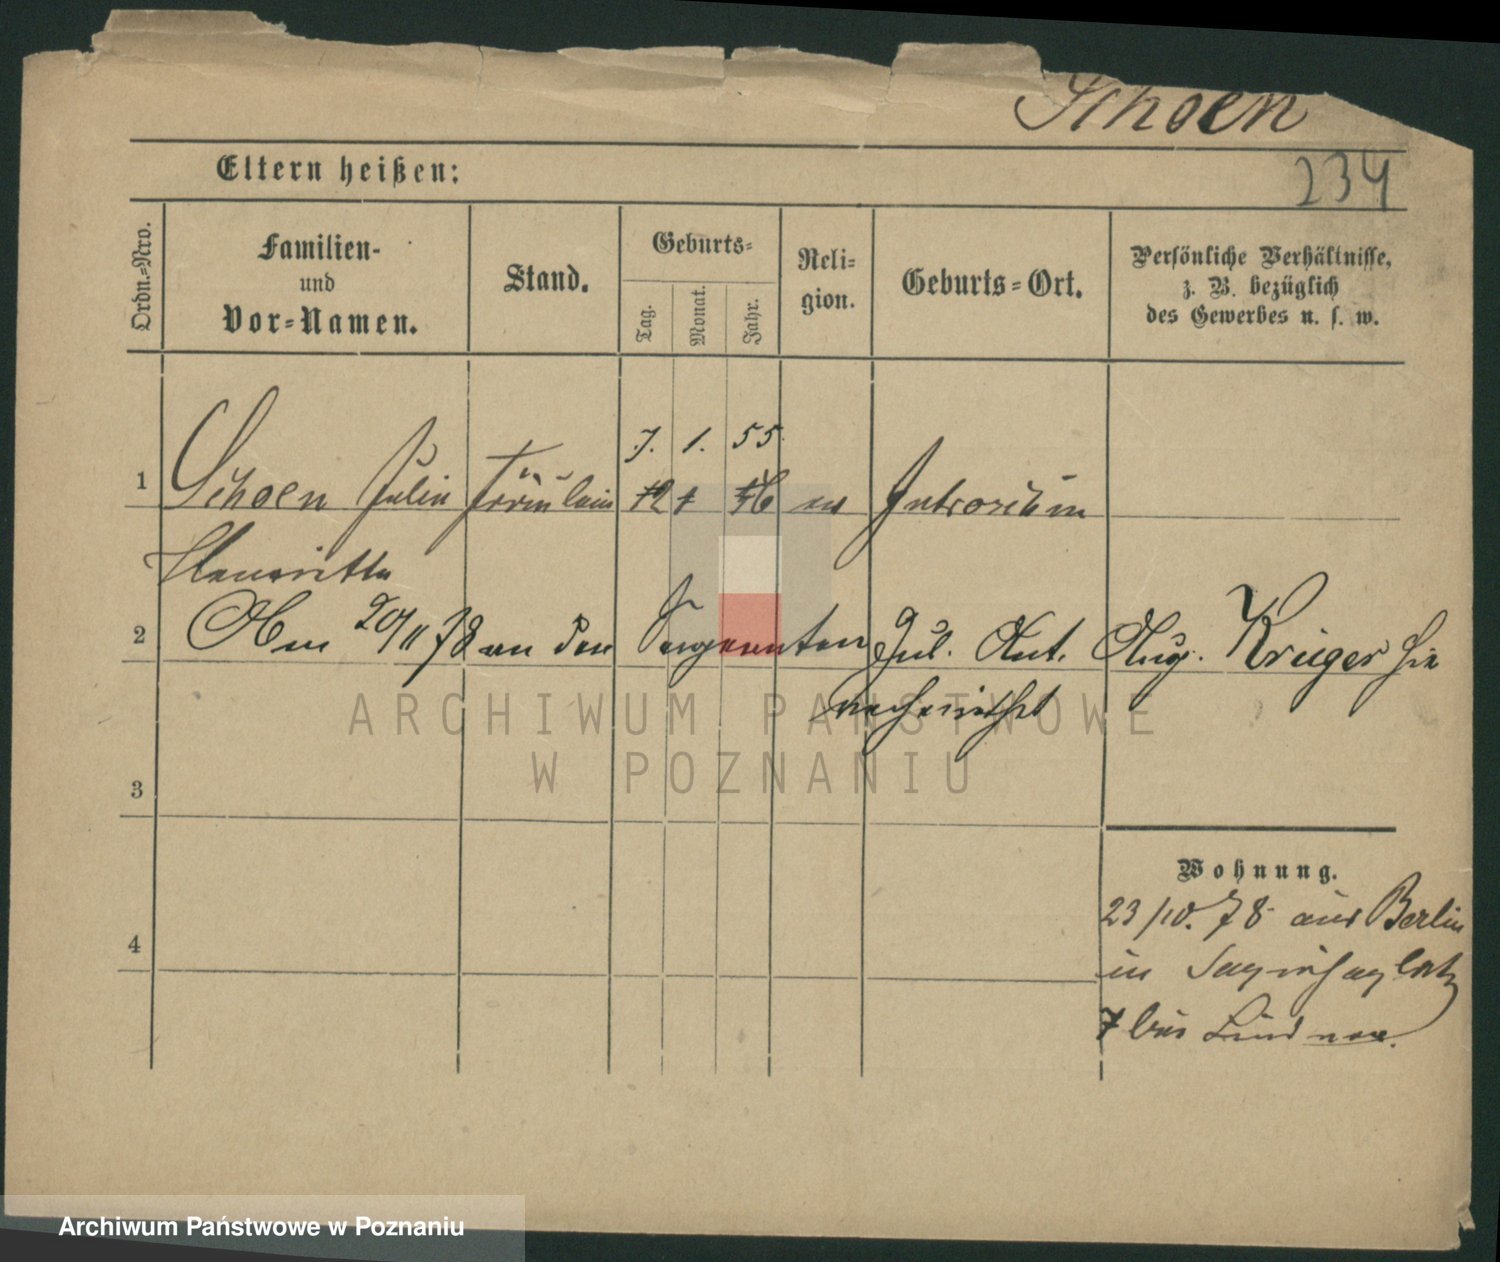 Schoen
234
Eltern heißen:
Ordn.=Nro.
Familien-
und
Vor=Namen.
Stand.
Geburts=
Tag.
Monat.
Jahr.
Reli=
gion.
Geburts=Ort.
Persönliche Verhältnisse,
z. B. bezüglich
des Gewerbes u. s. w.
7. 1. 55.
1 Schoen Julie Fräulein 12 1 46 ev Jutroschin
Henriette
2 Am 20/11 78 an den Sergeanten Jul. Ant. Aug. Krüger hie
verheirathet
3
Wohnung.
23/10. 78 aus Berlin
in
7 bei Lindner.
4
ARCHIWUM PAŃSTWOWE
W POZNANIU
Archiwum Państwowe w Poznaniu